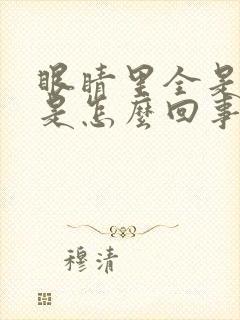 眼睛里全是
是怎麼回事
穆清